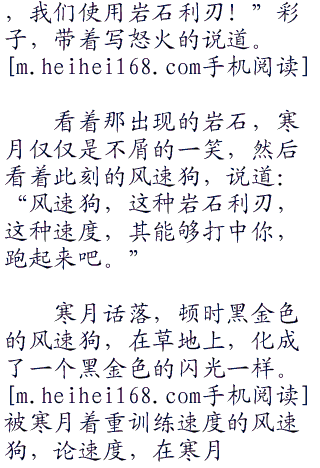 ，我们使用岩石利刃！”彩
子，带着写怒火的说道。
[m.heihei168.com手机阅读]
看着那出现的岩石，寒
月仅仅是不屑的一笑，然后
看着此刻的风速狗，说道：
“风速狗，这种岩石利刃，
这种速度，其能够打中你，
跑起来吧。”
寒月话落，顿时黑金色
的风速狗，在草地上，化成
了一个黑金色的闪光一样。
[m.heihei168.com手机阅读]
被寒月着重训练速度的风速
狗，论速度，在寒月